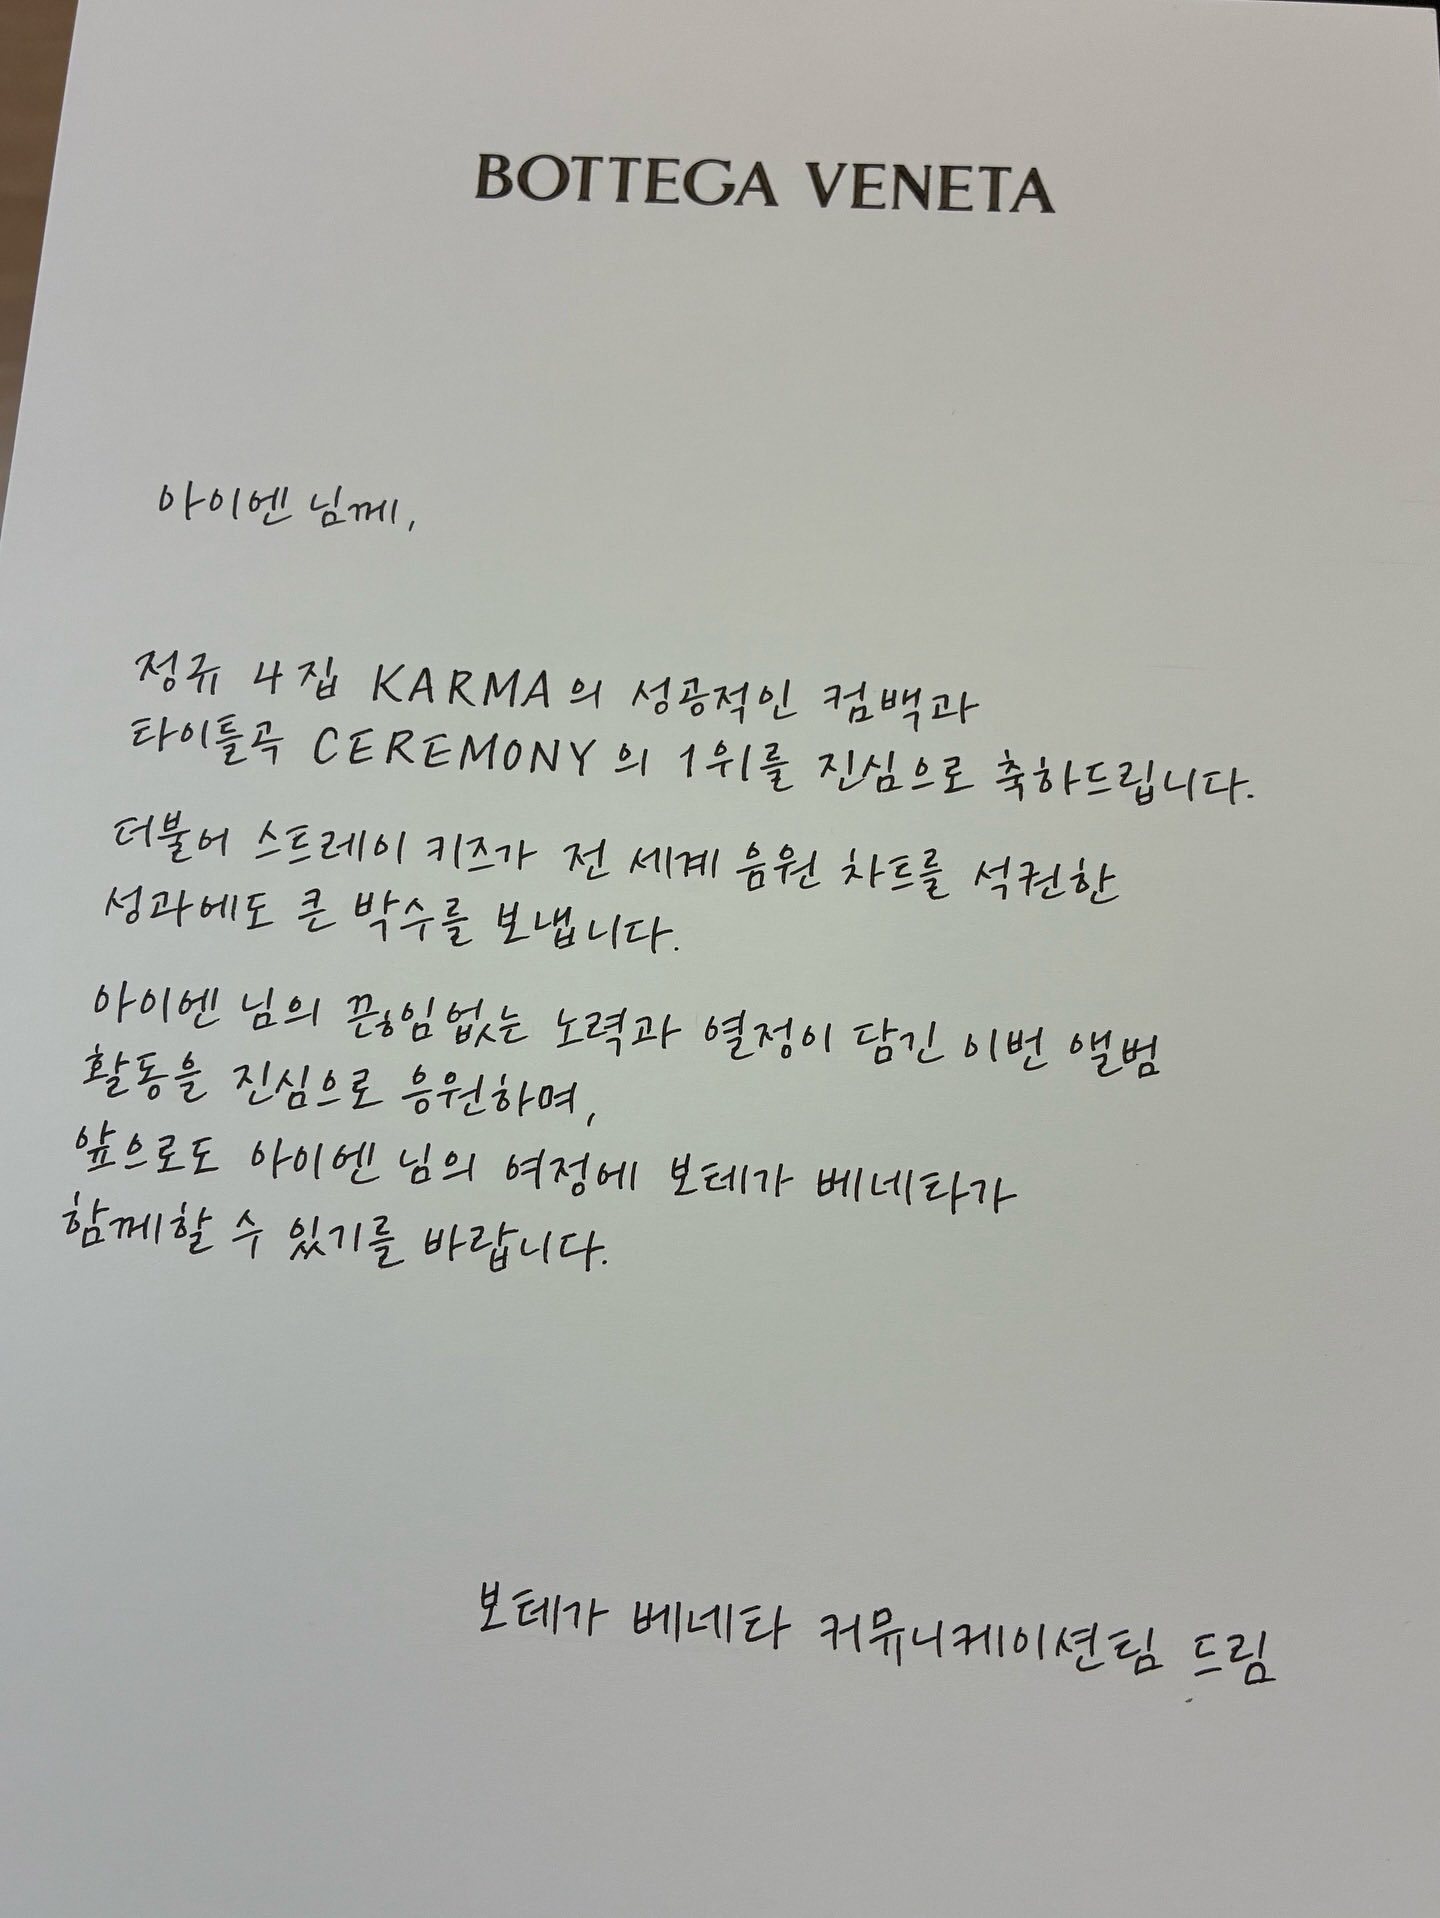 BOTTEGA VENETA
아이엔 님께,
정규 4집 KARMA의 성공적인 컴백과
타이틀곡 CEREMONY의 1위를 진심으로 축하드립니다.
더불어 스트레이 키즈가 전 세계 음원 차트를 석권한
성과에도 큰 박수를 보냅니다.
아이엔 님의 끊임없는 노력과 열정이 담긴 이번 앨범
활동을 진심으로 응원하며,
앞으로도 아이엔 님의 여정에 보테가 베네타가
함께할 수 있기를 바랍니다.
보테가 베네타 커뮤니케이션팀 드림